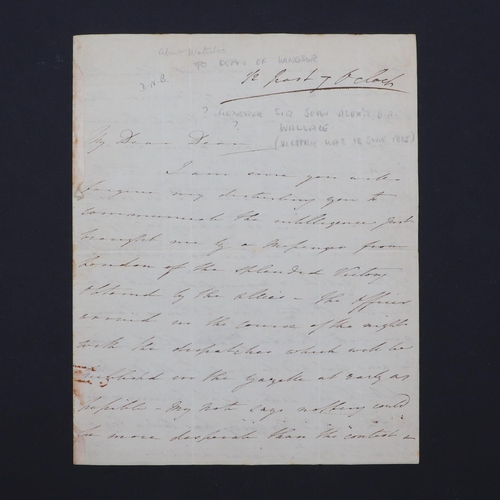 About Waterloo
TO DEAN OF WINDSOR
½ past 7 O'Clock
D.N.B.
? GENERAL SIR JOHN ALEX'R D. A.
? WALLACE
My Dear Dean
I am sure you will
forgive my disturbing you to
communicate the intelligence just
brought me by a Messenger from
London of the splendid Victory
obtained by the Allies - the Officer
arrived in the course of the night
with the dispatches which will be
published in the Gazette as early as
possible - My note says nothing could
be more desperate than the contest -